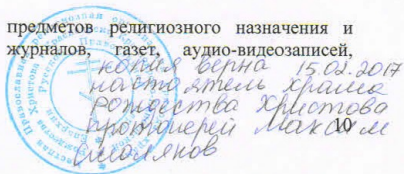 предметов религиозного назначения и
журналов, газет, аудио-видеозаписей,
копия верна 15.02.2017
настоятель Храма
Рождества Христова
протоиерей Максим
10
Смоляков